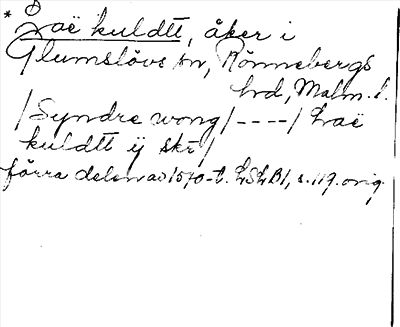 * Laë kuldtt, åker i
Glumslövs sn, Rönnebergs
hrd, Malm. l.
/Syndre wong/----/Laë
kuldtt ÿ skr/
förra delen av 1570-t. LSLB1, s. 119. orig.